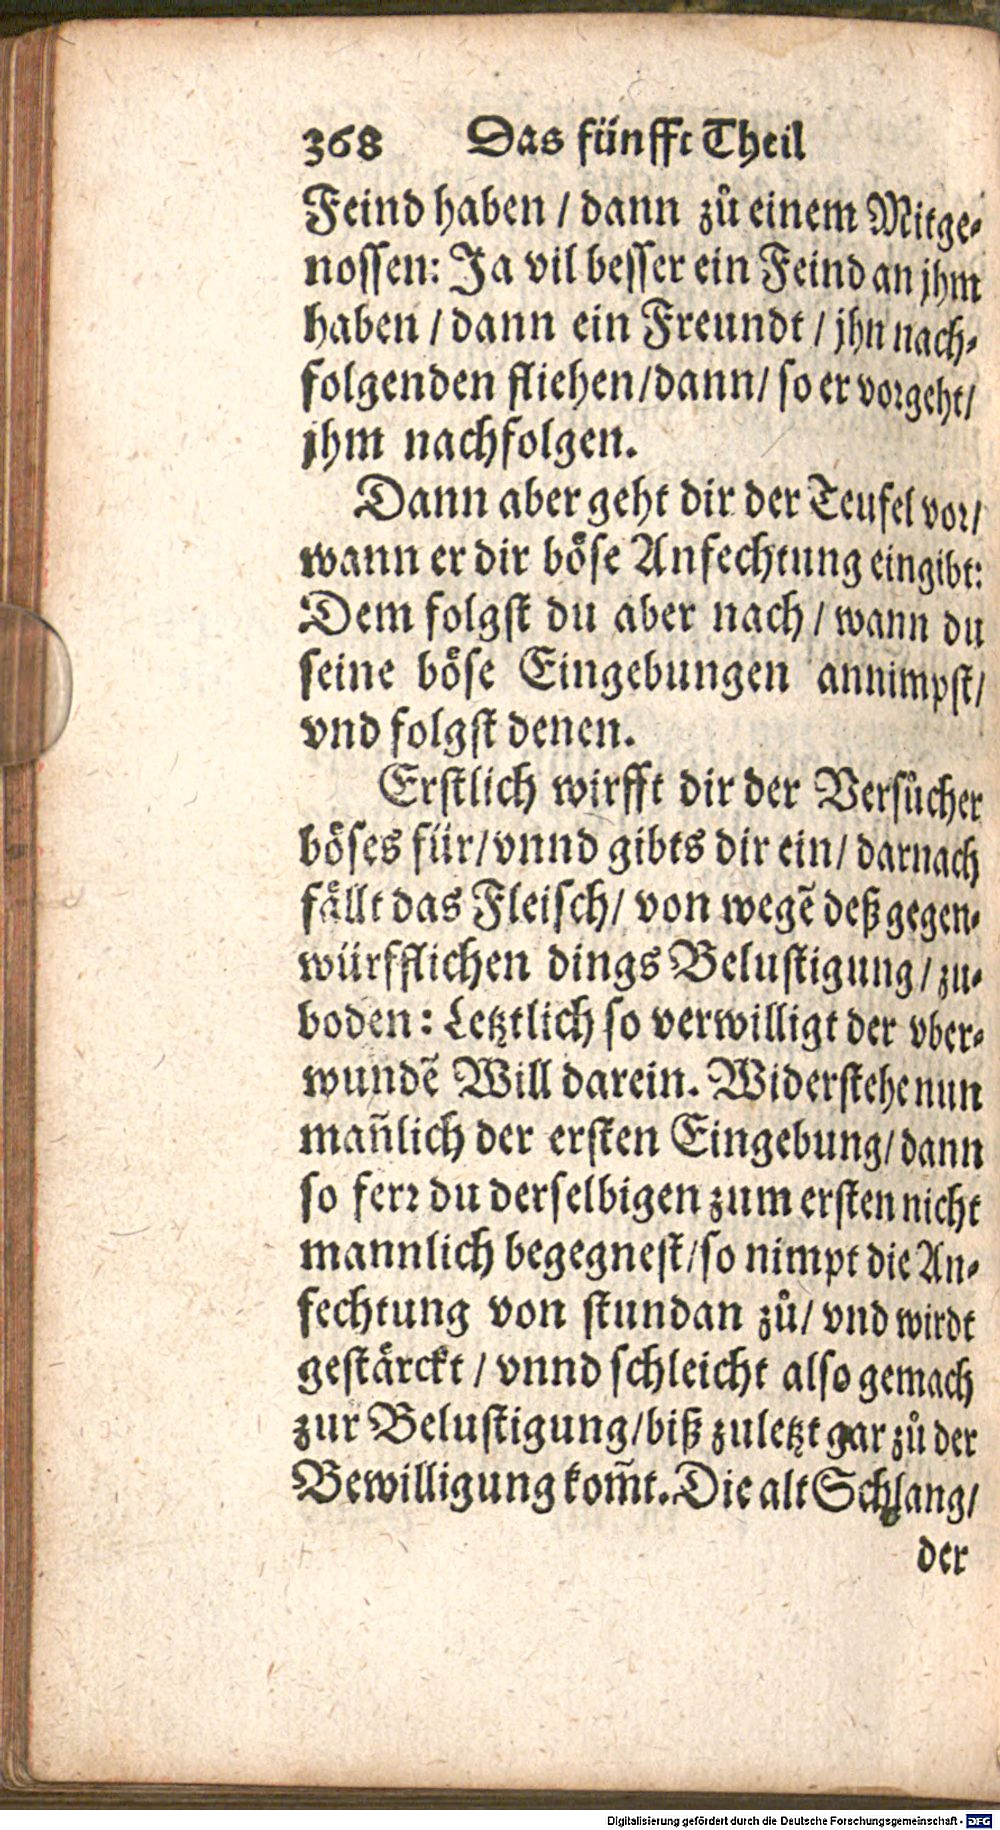 368 Das fünfft Theil
Feind haben / dann zů einem Mitge-
nossen: Ja vil besser ein Feind an jhm
haben / dann ein Freundt / jhn nach-
folgenden fliehen/dann/ so er vorgeht/
jhm nachfolgen.
Dann aber geht dir der Teufel vor/
wann er dir böse Anfechtung eingibt:
Dem folgst du aber nach / wann du
seine böse Eingebungen annimpst/
vnd folgst denen.
Erstlich wirfft dir der Versůcher
böses für/vnnd gibts dir ein/ darnach
fällt das Fleisch/ von wegẽ deß gegen-
würfflichen dings Belustigung/ zu-
boden: Letztlich so verwilligt der vber-
wundẽ Will darein. Widerstehe nun
mañlich der ersten Eingebung/dann
so ferr du derselbigen zum ersten nicht
mannlich begegnest/so nimpt die An-
fechtung von stundan zů/ vnd wirdt
gestärckt / vnnd schleicht also gemach
zur Belustigung/biß zuletzt gar zů der
Bewilligung kom̃t. Die alt Schlang/
der
Digitalisierung gefördert durch die Deutsche Forschungsgemeinschaft - DFG